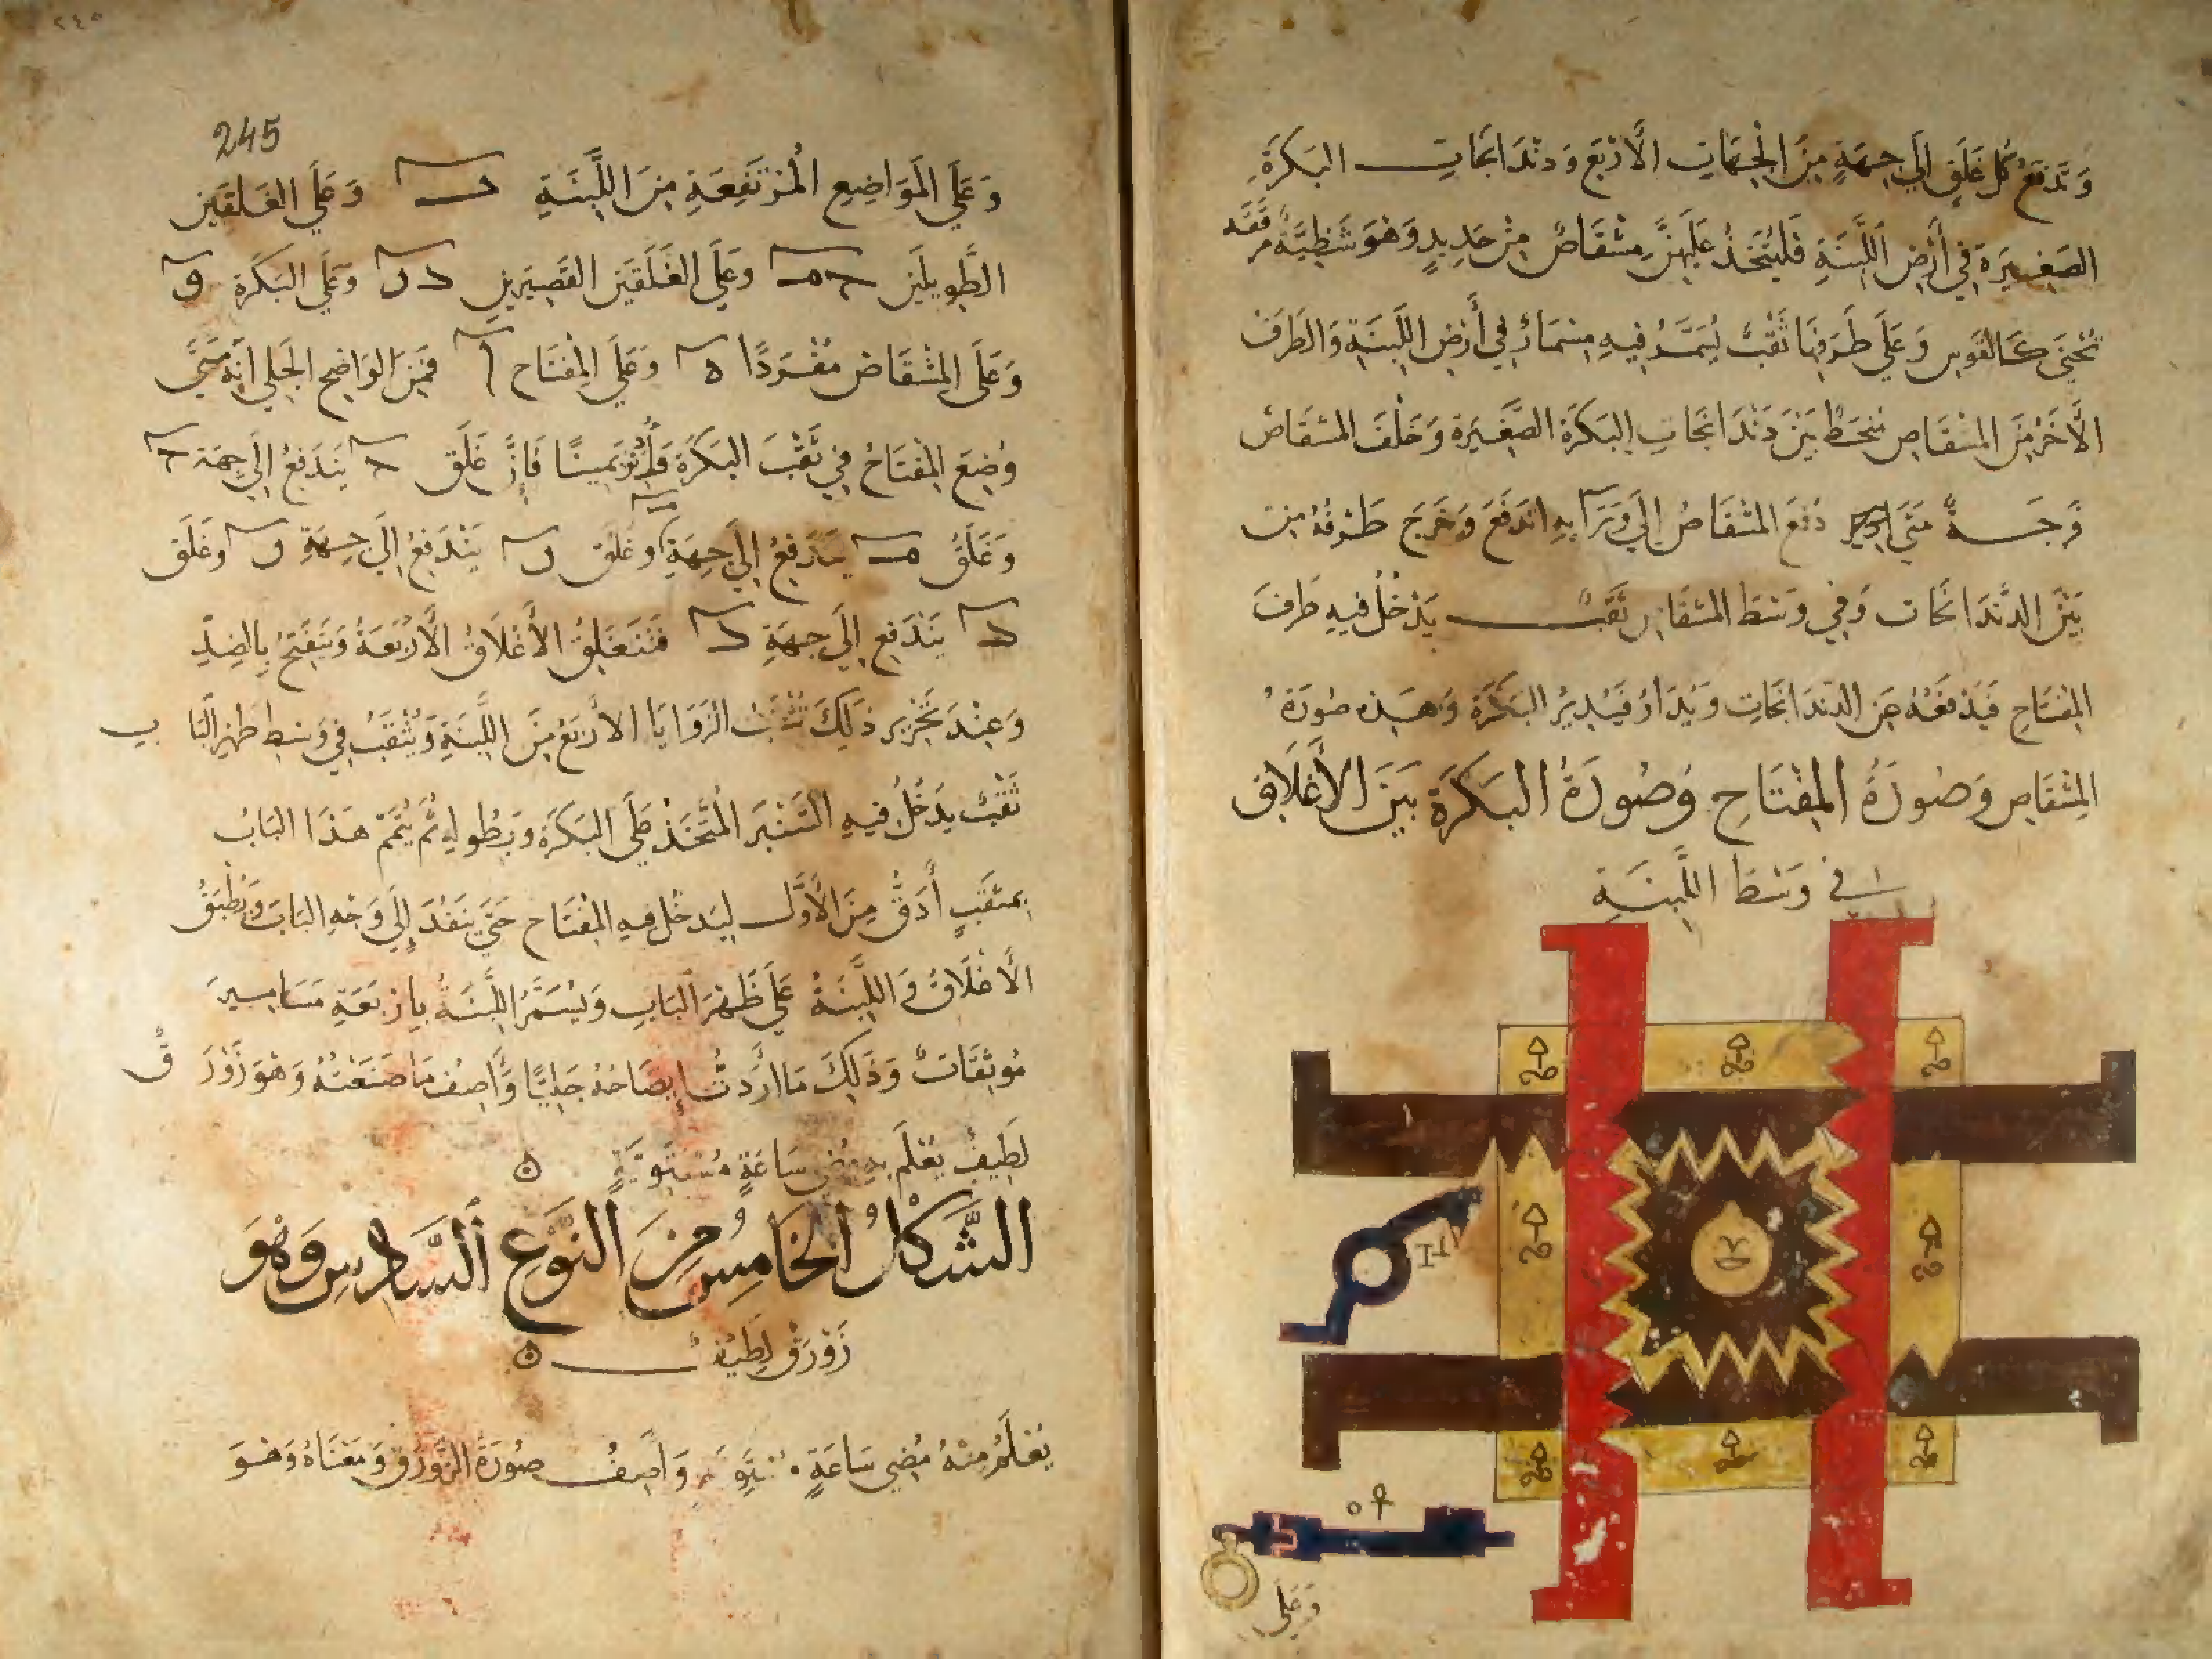 وَتَدفَعُ كُلَّ غَلَقٍ إِلَي جِهَةٍ مِنَ الْجِهَاتِ الأَرْبَعِ وَدَنْدَانَجَاتِ البَكَرَةِ
الصَغِيرَةِ فِي أَرْضِ اللَّبِنَةِ فَليُتَّخَذْ عَلَيْهِنَّ مِشْقَاصٌ مِنْ حَدِيدٍ وَهُوَ شَظِيَّةٌ
تُحْنَى كَالقَوسِ وَعَلَى طَرَفِهَا ثَقْبٌ يُسَمَّرُ فِيهِ مِسْمَارٌ فِي أَرْضِ اللَّبِنَةِ وَالطَّرَفُ
الأَخَرُ مِنَ المِشْقَاصِ يَنْحَطُّ بَيْنَ دَنْدَانَجَاتِ البَكَرَةِ الصَّغِيرَةِ وَخَلْفَ المِشْقَاصِ
فُرْجَةٌ مَتَى دُفِعَ المِشْقَاصُ إِلَي وَرَايِهِ اندَفَعَ وَخَرَجَ طَرَفُهُ مِنْ
بَيْنِ الدَّنْدَانَجَات وَفِي وَسَطِ المِشْقَاصِ ثَقْبٌ يَدْخُلُ فِيهِ طَرَفُ
المِفْتَاحِ فَيَدْفَعُهُ عَنِ الدَنْدَانْجَاتِ وَيُدَارُ فَيُدِيرُ البَكَرَةَ وَهَذِهِ صُورَةُ
المِشْقَاصِ وَصُورَةُ المِفْتَاحِ وَصُورَةُ البَكَرَةِ بَيْنَ الأَغْلَاقِ
فِي وَسَطِ اللَّبِنَةِ
وَعَلَى
245
وَعَلَى المَوَاضِعِ المُرْتَفِعَةِ مِنَ اللَّبِنَةِ وَعَلَى الغَلَقَيْنِ
الطَّوِيلَيْنِ وَعَلَى الغَلَقَيْنِ القَصِيرَيْنِ وَعَلَى البَكَرَةِ و
وَعَلَى المِشْقَاصِ مُفْرَدًا ه وَعَلَى المِفْتَاحِ فَمِنَ الوَاضِحِ الجَلِي أَنَّهُ مَتَى
وُضِعَ المِفْتَاحُ فِي ثَقْبِ البَكَرَةِ وَأُدِيرَ يَمِينًا فَإِنَّ غَلَقَ ح يَنْدَفِعُ إِلَى جِهَةِ ح
وَغَلَقُ يَنْدَفِعُ إِلَى جِهَةِ وَغَلَق ر يَنْدَفِعُ إِلَى جِهَةِ ر وَغَلَق
د يَنْدَفِع إِلَى جِهَةِ د فَتَنغَلِقُ الأَغْلَاقُ الأَرْبَعَةُ وَتَنفَتِحُ بِالضِّدِّ
وَعِنْدَ تَحْرِيرِ ذَلِكَ تُثْقَبُ الزَوَايَا الأَرْبَعُ مِنَ اللَّبِنَةِ وَيُثْقَبُ فِي وَسَطِ ظَهْرِ البَاب
ثَقْبٌ يَدْخُلُ فِيهِ المُتَّخَذُ عَلَى البَكَرَةِ وَبِطُولِهِ ثُمَّ يُتَمَّمُ هَذَا البَابُ
بِمِثْقَبٍ أَدَقَّ مِنَ الأَوَّلِ لِيَدخُلَ فِيهِ المِفْتَاح حَتَّى يَنفُذَ إِلَى وَجْهِ البَابِ وَيُطْبَقُ
الأَغْلَاقُ وَ اللَّبِنَةُ عَلَى ظَهْرِ البَابِ وَيُسَمَّرُ اللَّبِنَةُ بِأَرْبَعَةِ مَسَامِيرَ
مُوثَقَاتٍ وَذَلِكَ مَا أَرَدتُ إِيضَاحَهُ جَلِيًّا وَأَصِفُ مَا صَنَعْتُهُ وَهُوَ زَوْرَقٌ
لَطِيفٌ يُعْلَم بِهِ مُضِي سَاعَةٍ مُسْتَوِيَةٍ
الشَّكْلُ الخَامِسُ مِنَ النَّوْعِ السَّادِسِ وَهُوَ
زَوْرَقٌ لَطِيفٌ
يُعْلَمُ مِنْهُ مُضِي سَاعَةٍ وَأَصِفُ صُورَةَ الزَّوْرَقِ وَمَعْنَاهُ وَهُوَ